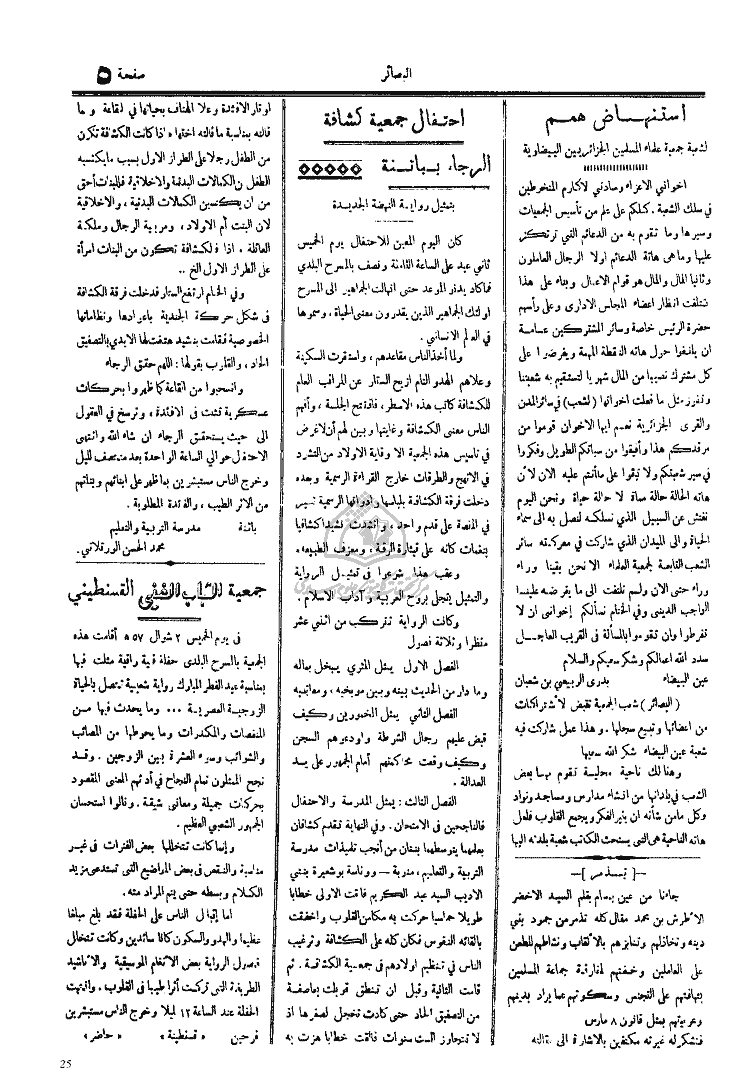 البصائر
صفحة ٥
استنهاض همم
لشعبة جمعية علماء المسلمين الجزائريين البيضاوية
اخواني الاعزاء وسادتي لاكارم المنخرطين
في سلك الشعبة . كلكم على علم من تأسيس الجمعيات
وسيرها وما تقوم به من الدعائم التي ترتكز
عليها وما هي هاتة الدعائم اولا الرجال العاملون
وثانيا المال والمال هو قوام الاعمال وبناء على هذا
نستلفت انظار اعضاء المجلس الادارى وعلى رأسهم
حضرة الرئيس خاصة وسائر المشتركين عامة
ان يلتفوا حول هاته النقطة المهمة ويفرضوا على
كل مشترك نصيبا من المال شهريا لتستقيم به شعبتنا
ونفرز مثل ما فعلت اخواتها (لشعب) في سائر المدن
والقرى الجزائرية نعم ايها الاخوان قوموا من
مرقدكم هذا وأفيقوا من سباتكم الطويل وفكروا
في سير شعبتكم ولا تبقوا على ما أنتم عليه الان لأن
هاته الحالة حالة مماتة لا حالة حياة ونحن اليوم
نفتش عن السبيل الذي نسلكه لنصل به الى سماء
الحياة والى الميدان الذي شاركت في معركته سائر
الشعب التابعة لجمعية العلماء الا نحن بقينا وراء
وراء حتى الان ولم نلتفت الى ما يفرضه علينا
الواجب الديني وفي الختام نسألكم إخواني ان لا
تفرطوا وان تقوموا بالمسألة في القريب العاجل
سدد الله اعمالكم وشكر سعيكم والسلام
عين البيضاء بدرى الربيعي بن شعبان
(البصائر) شعب الجمعية تقبض لاشتراكات
من اعضائها وتبيع سجلها . وهذا عمل شاركت فيه
شعبة عين البيضاء شكر الله سعيها
وهنالك ناحية مجلسية تقوم بها بعض
الشعب في بلدانها من انشاء مدارس ومساجد ونواد
وكل ما من شأنه ان ينير الفكر ويجمع القلوب فلعل
هاته الناحية هى التى يستحث الكاتب شعبة بلدته اليها
—[ تذمر ]—
جاءنا من عين بسام بقلم السيد الاخضر
الاطرش بن محمد مقال كله تذمر من جمود بني
دينه وتخاذلهم وتنابزهم بالالقاب ونشاطهم للطعن
على العاملين وخفتهم لمفارقة جماعة المسلمين
بتهافتهم على التجنس وسكوتهم عما يراد بدينهم
وعربيتهم بمثل قانون ٨ مارس
فنشكر له غيرته مكتفين بالاشارة الى مقالته
احتفال جمعية كشافة
الرجاء بباتنة
بتمثيل رواية النهضة الجديدة
كان اليوم المعين للاحتفال يوم الخميس
ثاني عيد على الساعة الثامنة ونصف بالمسرح البلدي
فما كاد يدنو الموعد حتى انهالت الجماهير الى المسرح
اولئك الجماهير الذين يقدرون معنى الحياة ، وسموها
في العالم الانساني .
ولما أخذ الناس مقاعدهم ، واستقرت السكينة
وعلاهم الهدو التام ازيح الستار عن المراقب العام
للكشافة كاتب هذه الاسطر ، فافتتح الجلسة ، وأفهم
الناس معنى الكشافة وغايتها وبين لهم أن لا غرض
في تأسيس هذه الجمعية الا وقاية الاولاد من التشرد
في الانهج والطرقات خارج القراءة الرسمية وبعده
دخلت فرقة الكشافة بلباسها وادواتها الرسمية تسير
في المنصة على قدم واحد ، وانشدت نشيدا كشافيا
بنغمات كانه على قيثارة الرقة ، ومعزف الطبيعة .
وعقب هذا شرعوا في تمثيل الرواية
والتمثيل يتجلى بروح العربية وآداب الاسلام .
وكانت الرواية تتركب من اثني عشر
منظرا وثلاثة فصول
الفصل الاول يمثل المثري يبخل بماله
وما دار من الحديث بينه وبين موبخيه ، ومعاتبيه
الفصل الثاني يمثل الخموريين وكيف
قبض عليهم رجال الشرطة واودعوهم السجن
وكيف وقعت محاكمتهم أمام الجمهور على يد
العدالة .
الفصل الثالث : يمثل المدرسة والاحتفال
فالناجحين في الامتحان . وفي النهاية تقدم كشافان
بعلمهما يتوسطهما بنتان من أنجب تلميذات مدرسة
التربية والتعليم ، منوبة — وونامة بوشعيرة بنتي
الاديب السيد عبد الكريم فالقت الاولى خطابا
طويلا حماسيا حركت به مكامن القلوب واخفقت
بالقائه النفوس فكان كله على الكشافة وترغيب
الناس في تنظيم اولادهم في جمعية الكشافة . ثم
قامت الثانية وقبل ان تنطق قوبلت بعاصفة
من التصفيق الحاد حتى كادت تخجل لصغرها اذ
لا تتجاوز الست سنوات فالقت خطابا هزت به
اوتار الافئدة وعلا الهتاف بحياتها في القاعة وما
قالته بمناسبة ما قالته اختها « اذا كانت الكشافة تكون
من الطفل رجلا على الطراز الاول بسبب ما يكتسبه
الطفل من الكمالات البدنية والاخلاقية فالبنات أحق
من ان يكتسبن الكمالات البدنية ، والاخلاقية
لان البنت أم الاولاد ، ومربية الرجال وملكة
العائلة . اذا فالكشافة تكون من البنات امرأة
على الطراز الاول الخ ..
وفي الختام ارتفع الستار فدخلت فرقة الكشافة
في شكل حركة الجندية باعدادها ونظاماتها
الخصوصية فقامت بنشيد هتفت لها الايدي بالتصفيق
الحاد ، والقلوب بقولها : اللهم حقق الرجاء
وانسحبوا من القاعة كما ظهروا بحركات
عسكرية تثبت في الافئدة ، وترسخ في العقول
الى حيث يستحقق الرجاء ان شاء الله وانتهى
الاحتفال حوالي الساعة الواحدة بعد منتصف الليل
وخرج الناس مستبشرين بما ظهر على ابنائهم وبناتهم
من الاثر الطيب ، والفائدة المطلوبة .
باتنة مدرسة التربية والتعليم
محمد الحسن الورتلاني .
جمعية الشباب الفني القسنطيني
في يوم الخميس ٢ شوال ٥٧ هـ أقامت هذه
الجمعية بالمسرح البلدى حفلة فنية راقية مثلت فيها
بمناسبة عيد الفطر المبارك رواية شعبية تتصل بالحياة
الزوجية العصرية ... وما يحدث فيها من
المنغصات والمكدرات وما يحوطها من المصائب
والشوائب وسوء العشرة بين الزوجين . وقد
نجح الممثلون تمام النجاح في أدائهم المعنى المقصود
بحركات جميلة ومعاني شيقة . ونالوا استحسان
الجمهور الشعبي العظيم .
وإنما كانت تتخللها بعض الفترات في غير
مناسبة والنقص في بعض المواضيع التي تستدعي مزيد
الكلام وبسطه حتى يتم المراد منه .
اما إقبال الناس على الحفلة فقد بلغ مبلغا
عظيما والهدو والسكون كانا سائدين وكانت تتخلل
فصول الرواية بعض الانغام الموسيقية والاناشيد
الطريفة التى تركت أثرا طيبا في القلوب . وانتهت
الحفلة عند الساعة ١٢ ليلا وخرج الناس مستبشرين
فرحين « قسنطينة » « حاضر »
25